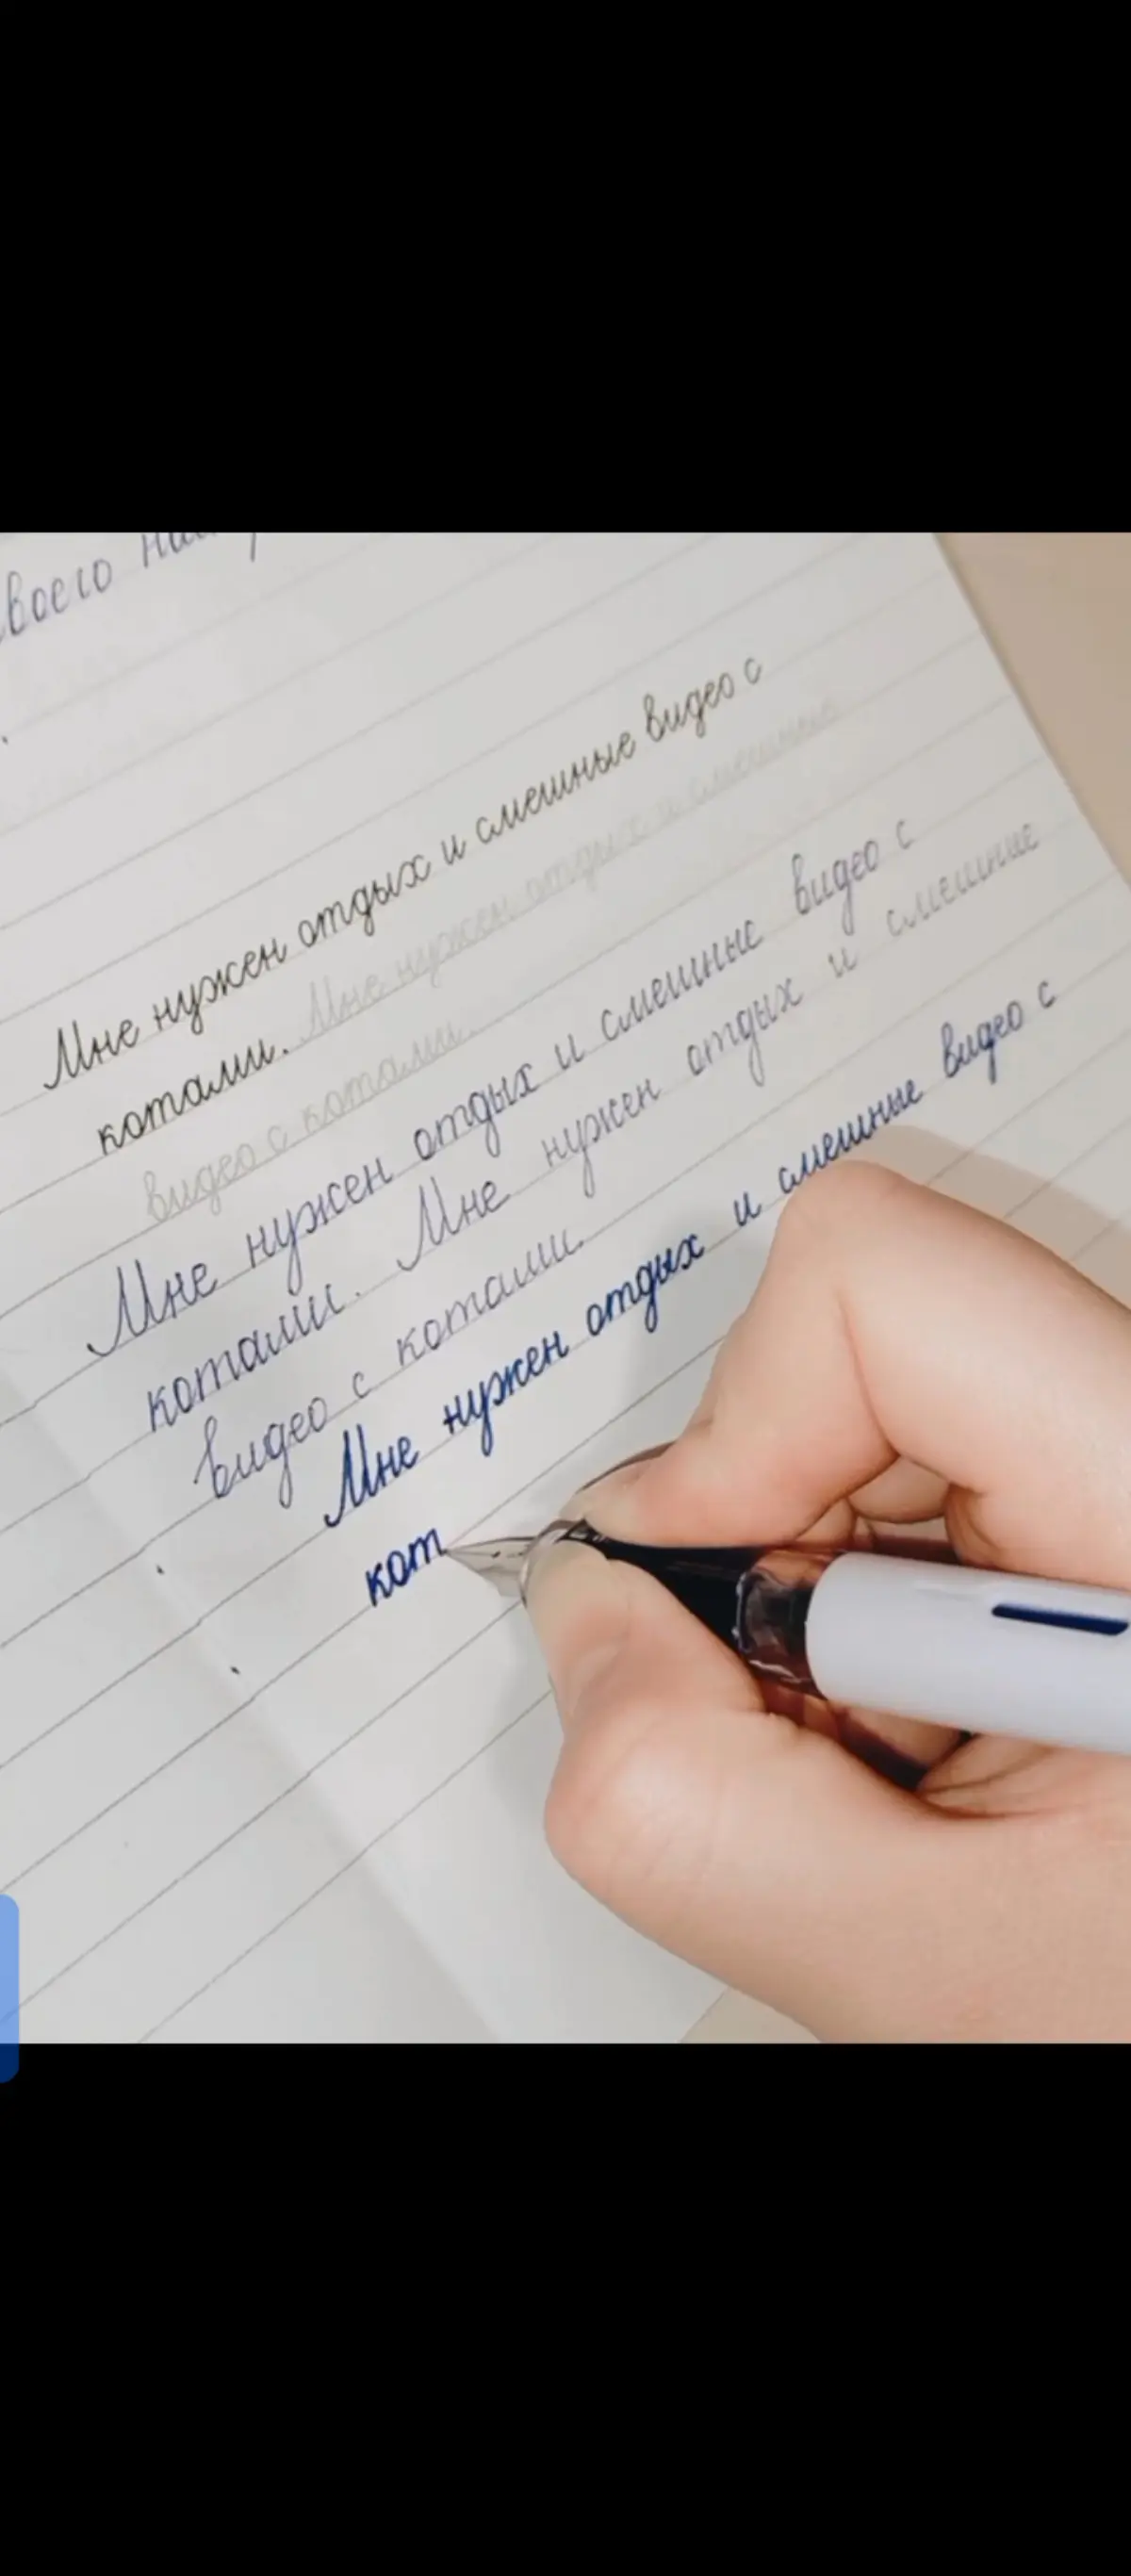 своего
Мне нужен отдых и смешные видео с
котами. Мне нужен отдых и смешные
видео с котами.
Мне нужен отдых и смешные видео с
котами. Мне нужен отдых и смешние
видео с котами.
Мне нужен отдых и смешные видео с
кот